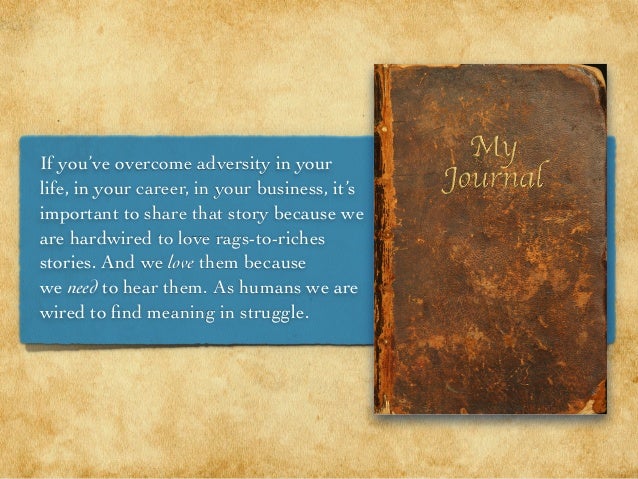 If you’ve overcome adversity in your
life, in your career, in your business, it’s
important to share that story because we
are hardwired to love rags-to-riches
stories. And we love them because
we need to hear them. As humans we are
wired to find meaning in struggle.
My
Journal